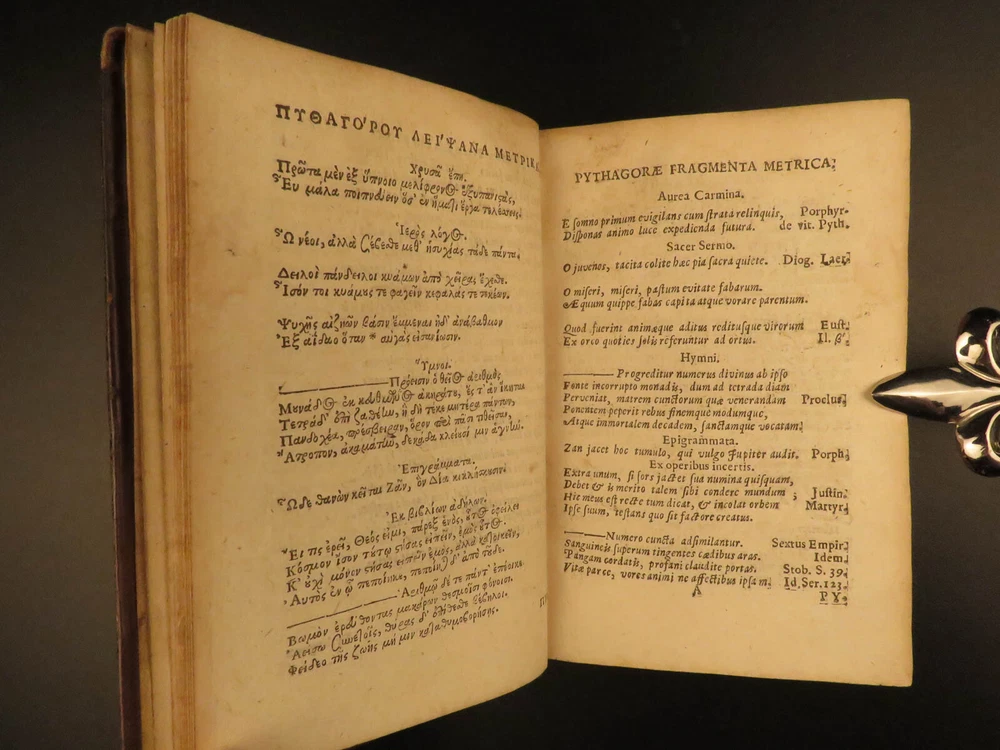 ΠΥΘΑΓΟ'ΡΟΥ ΛΕΙ'ΨΑΝΑ ΜΕΤΡΙΚ
Χρυσᾶ ἔπη.
Πρῶτα μὲν ἐξ ὕπνοιο μελίφρονος ἐξυπανιςὰς,
Εὖ μάλα ποιπνύειν ὅσ' ἐν ἤματι ἔργα τελέσσεις.
Ἱερὸς λόγος.
Ὦ νέοι, ἀλλὰ σέβεσθε μεθ' ἡσυχίας τάδε πάντα.
Δειλοὶ πάνδειλοι κυάμων ἄπο χεῖρας ἔχεσθε.
Ἶσόν τοι κυάμους τε φαγεῖν κεφαλάς τε τοκήων.
Ψυχῆς αἰζηῶν βάσιν ἔμμεναι ἠδ' ἀνάβαθμον
Ἐξ ἀΐδαο ὅταν αὐγὰς εἰσανίωσιν.
Ὕμνοι.
Πρόεισιν ὁ θεῖος ἀριθμὸς
Μουνάδος ἐκ κευθμῶνος ἀκηράτε, ἔς τ' ἂν ἵκηται
Τετράδ' ἐπὶ ζαθέην, ἣ δὴ τέκε μητέρα πάντων,
Πανδοχέα, πρέσβειραν, ὅρον περὶ πᾶσι τιθεῖσαν,
Ἄτροπον, ἀκαμάτην, δεκάδα κλείουσί μιν ἁγνήν.
Ἐπιγράμματα.
Ὧδε θανὼν κεῖται Ζᾶν, ὃν Δία κικλήσκουσιν.
Ἐκ βιβλίων ἀδήλων.
Εἴ τις ἐρεῖ, Θεός εἰμι, πάρεξ ἑνὸς, οὗτος ὀφείλει
Κόσμον ἴσον τούτῳ στήσας εἰπεῖν, ἐμὸς οὗτος.
Κ' οὐχὶ μόνον στήσας εἰπεῖν ἐμὸς, ἀλλὰ κατοικεῖν,
Αὐτὸς ἐν ᾧ πεποίηκε, πεποίηται δ' ἀπὸ τούτου.
Ἀριθμῷ δέ τε πάντ' ἐπέοικε.
Βωμὸν ἐρεύθοντας μακάρων θεσμοῖσι φόνοισι.
Ἀείσω συνετοῖς, θύρας δ' ἐπίθεσθε βέβηλοι.
Φείδεο τῆς ζωῆς μή μιν καταθυμοβορήσῃς.
PYTHAGORÆ FRAGMENTA METRICA.
Aurea Carmina.
E somno primum evigilans cum strata relinquis, Porphyr.
Disponas animo luce expedienda futura. de vit. Pyth.
Sacer Sermo.
O juvenes, tacita colite hæc pia sacra quiete. Diog. Laer.
O miseri, miseri, pastum evitate fabarum.
Æquum quippe fabas capita atque vorare parentum.
Quod fuerint animæque aditus reditusque virorum Eust.
Ex orco quoties solis referuntur ad ortus. Il. β'.
Hymni.
Progreditur numerus divinus ab ipso
Fonte incorrupto monadis, dum ad tetrada diam
Perveniat, matrem cunctorum quæ venerandam Proclus.
Ponentem peperit rebus finemque modumque,
Atque immortalem decadem, sanctamque vocatam.
Epigrammata.
Zan jacet hoc tumulo, qui vulgo Jupiter audit. Porph.
Ex operibus incertis.
Extra unum, si sors jactet sua numina quisquam,
Debet & is merito talem sibi condere mundum ; Justin.
Hic meus est recte tum dicat, & incolat orbem Martyr.
Ipse suum, testans quo sit factore creatus.
Numero cuncta adsimilantur. Sextus Empir.
Sanguineis superum tingentes cædibus aras. Idem.
Pangam cordatis, profani claudite portas. Stob. S. 39.
Vitæ parce, vores animi ne affectibus ipsam. Id. Ser. 123.
A
PY.